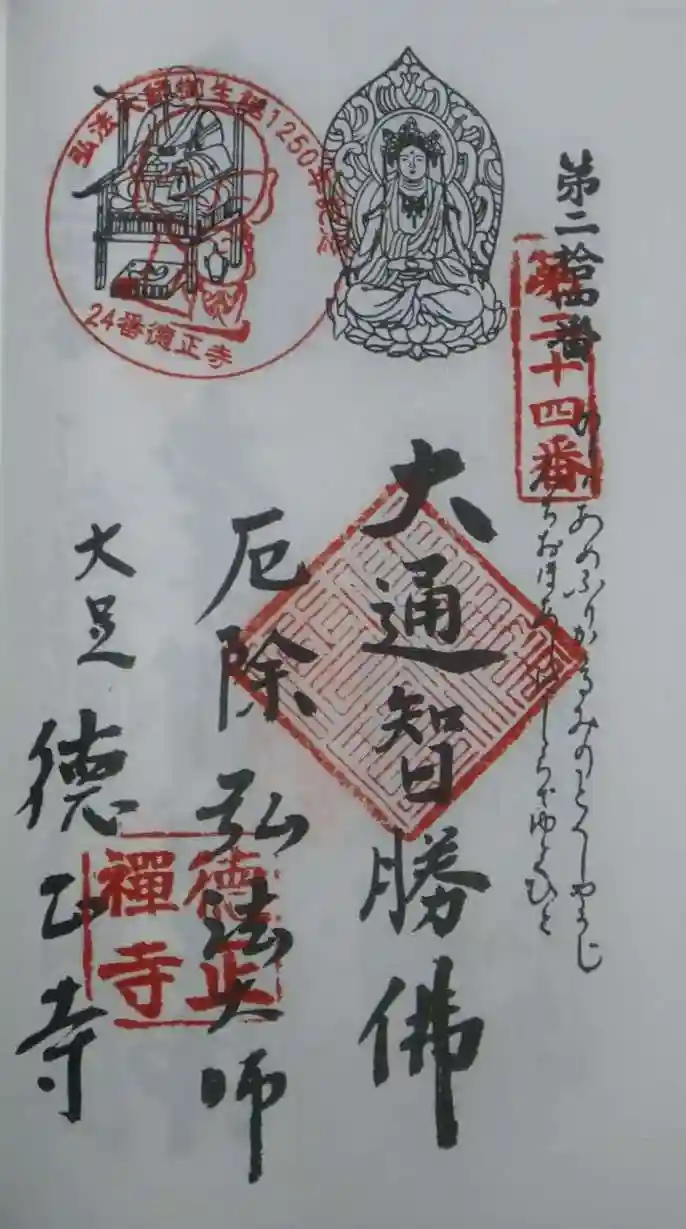 第二拾四番
第二十四番
あめふりかるみのとくしやうじ
大通智勝佛
厄除弘法大師
大足
徳正寺
徳正
禪寺
弘法大師御生誕1250年記念
24番徳正寺